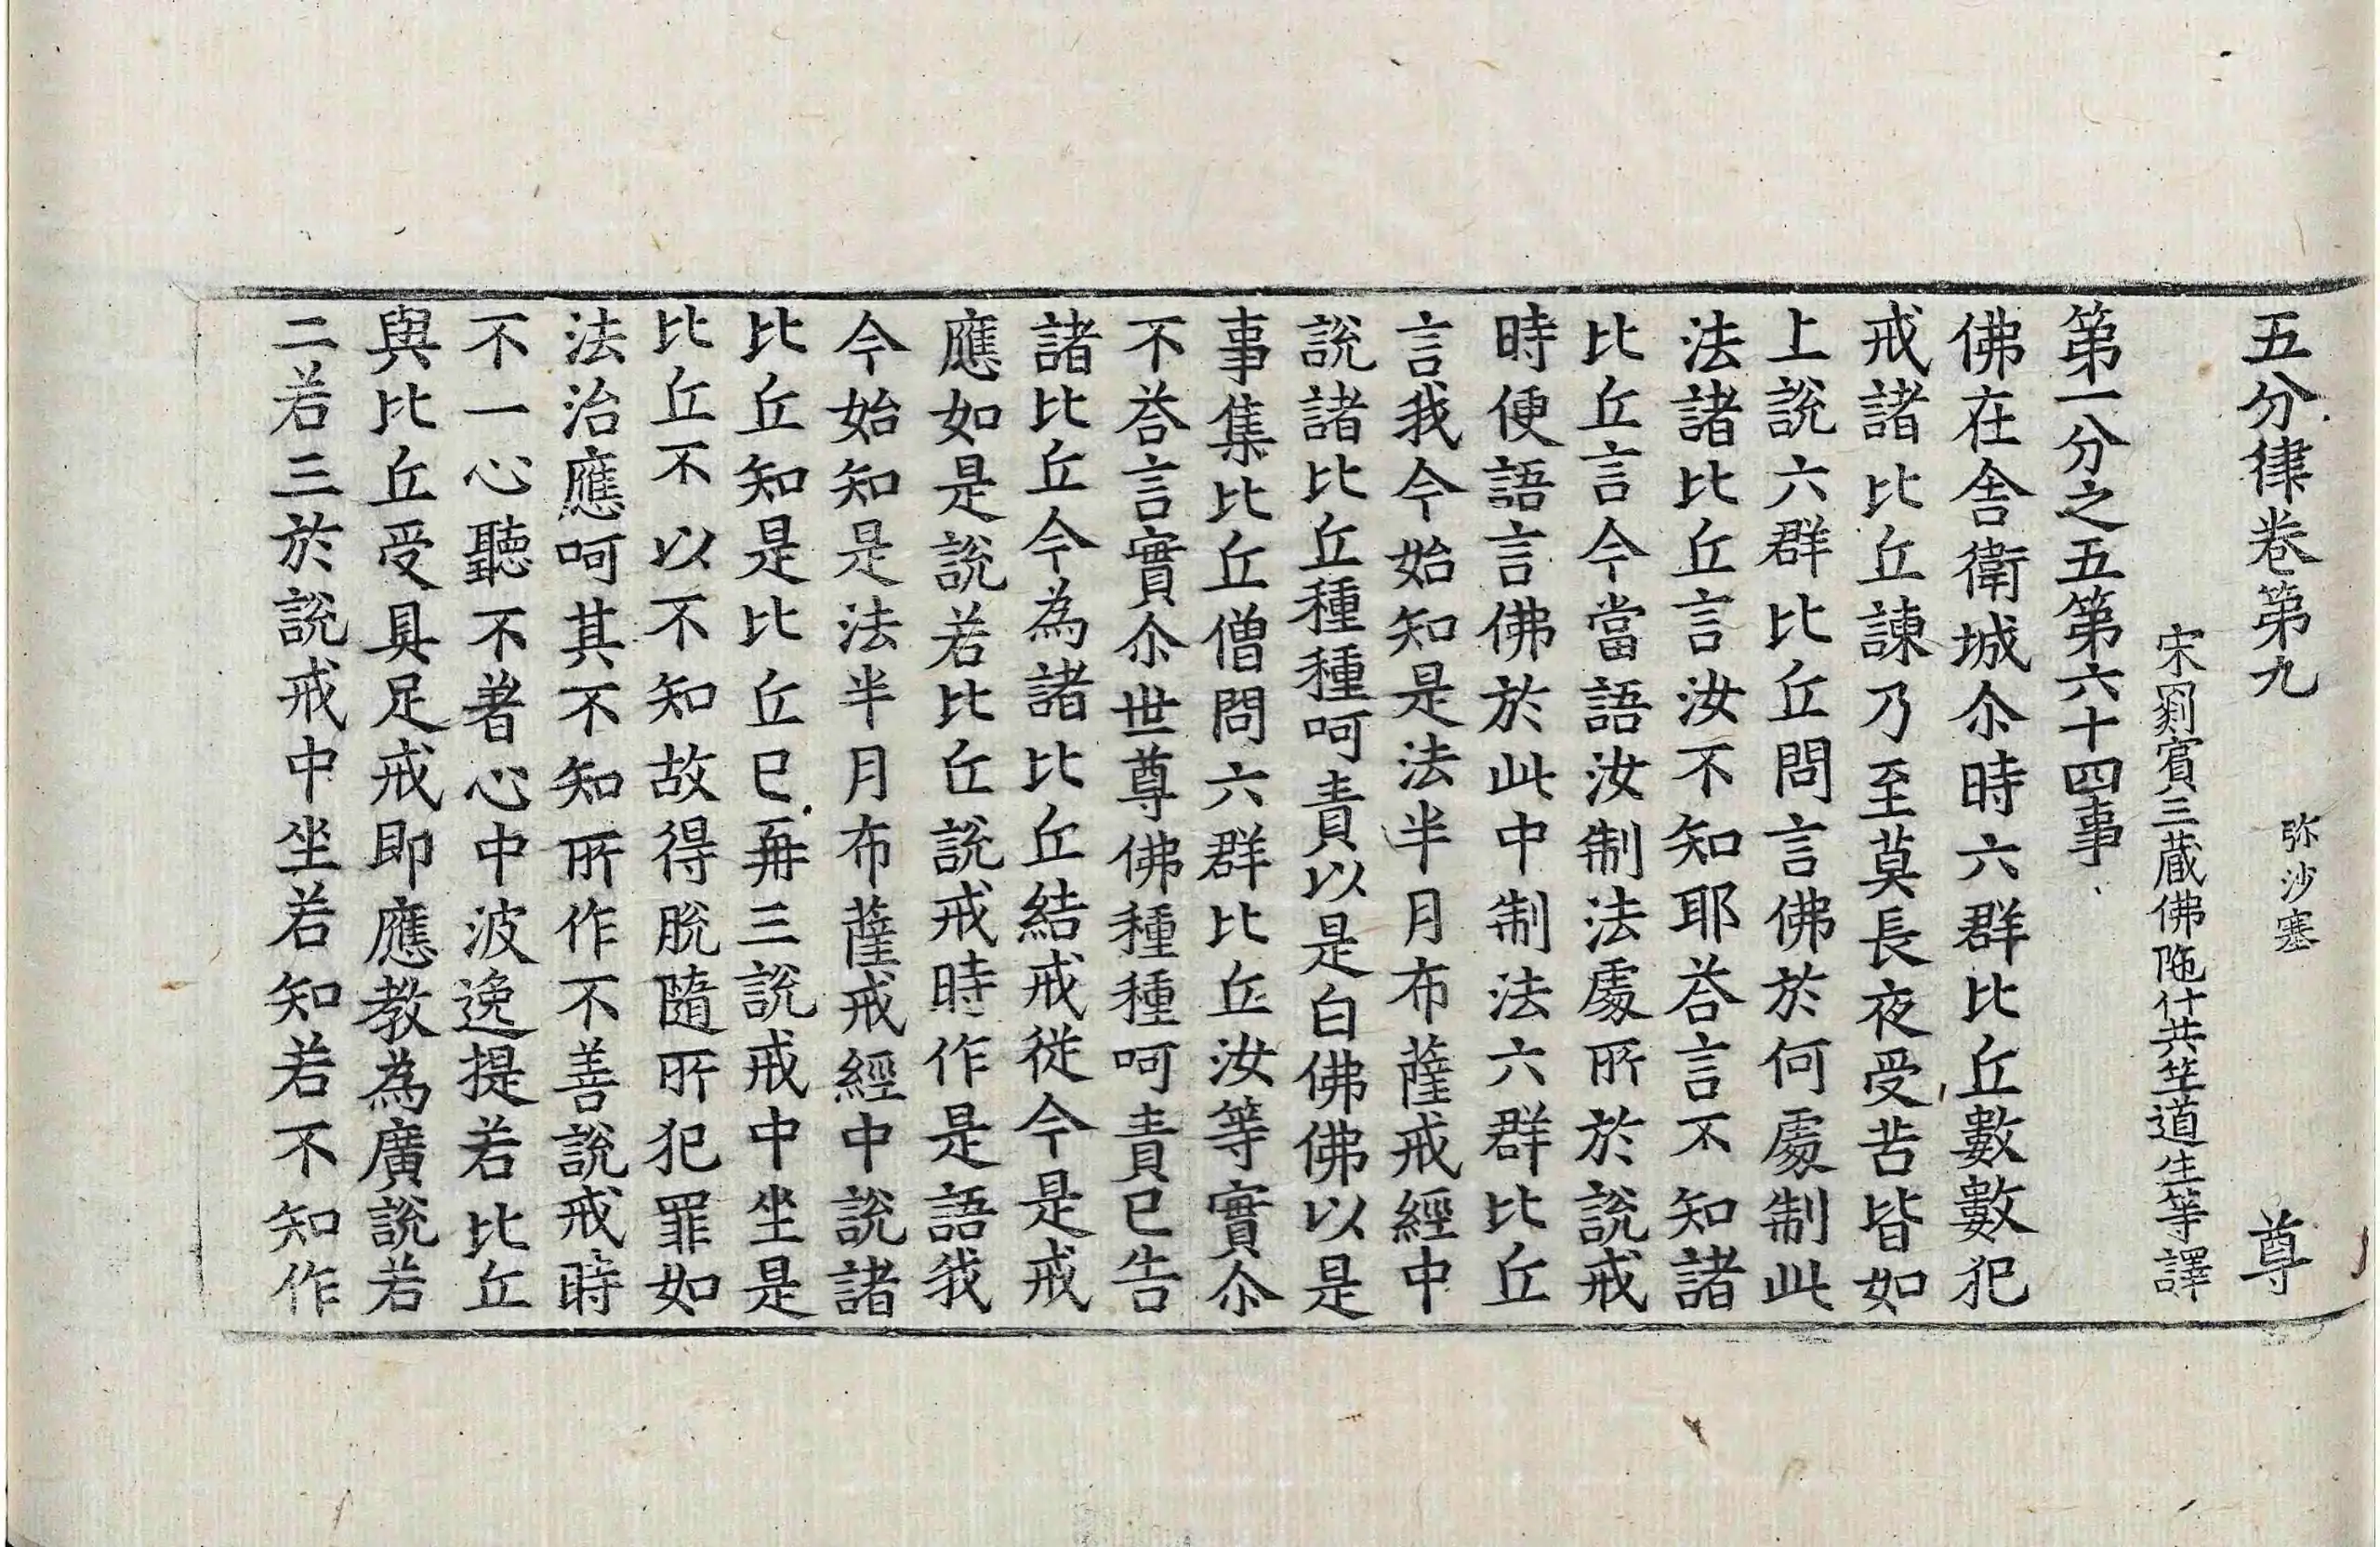 五分律卷第九 弥沙塞 尊
宋罽賓三藏佛陁什共竺道生等譯
第一分之五第六十四事
佛在舍衛城尒時六群比丘數數犯
戒諸比丘諫乃至莫長夜受苦皆如
上說六群比丘問言佛於何處制此
法諸比丘言汝不知耶荅言不知諸
比丘言今當語汝制法處所於說戒
時便語言佛於此中制法六群比丘
言我今始知是法半月布薩戒經中
說諸比丘種種呵責以是白佛佛以是
事集比丘僧問六群比丘汝等實尒
不荅言實尒世尊佛種種呵責已告
諸比丘今為諸比丘結戒從今是戒
應如是說若比丘說戒時作是語我
今始知是法半月布薩戒經中說諸
比丘知是比丘已再三說戒中坐是
比丘不以不知故得脫隨所犯罪如
法治應呵其不知所作不善說戒時
不一心聽不著心中波逸提若比丘
與比丘受具足戒即應教為廣說若
二若三於說戒中坐若知若不知作